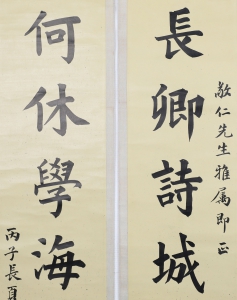 敬仁先生雅屬即正
長卿詩城
何休學海
丙子長夏